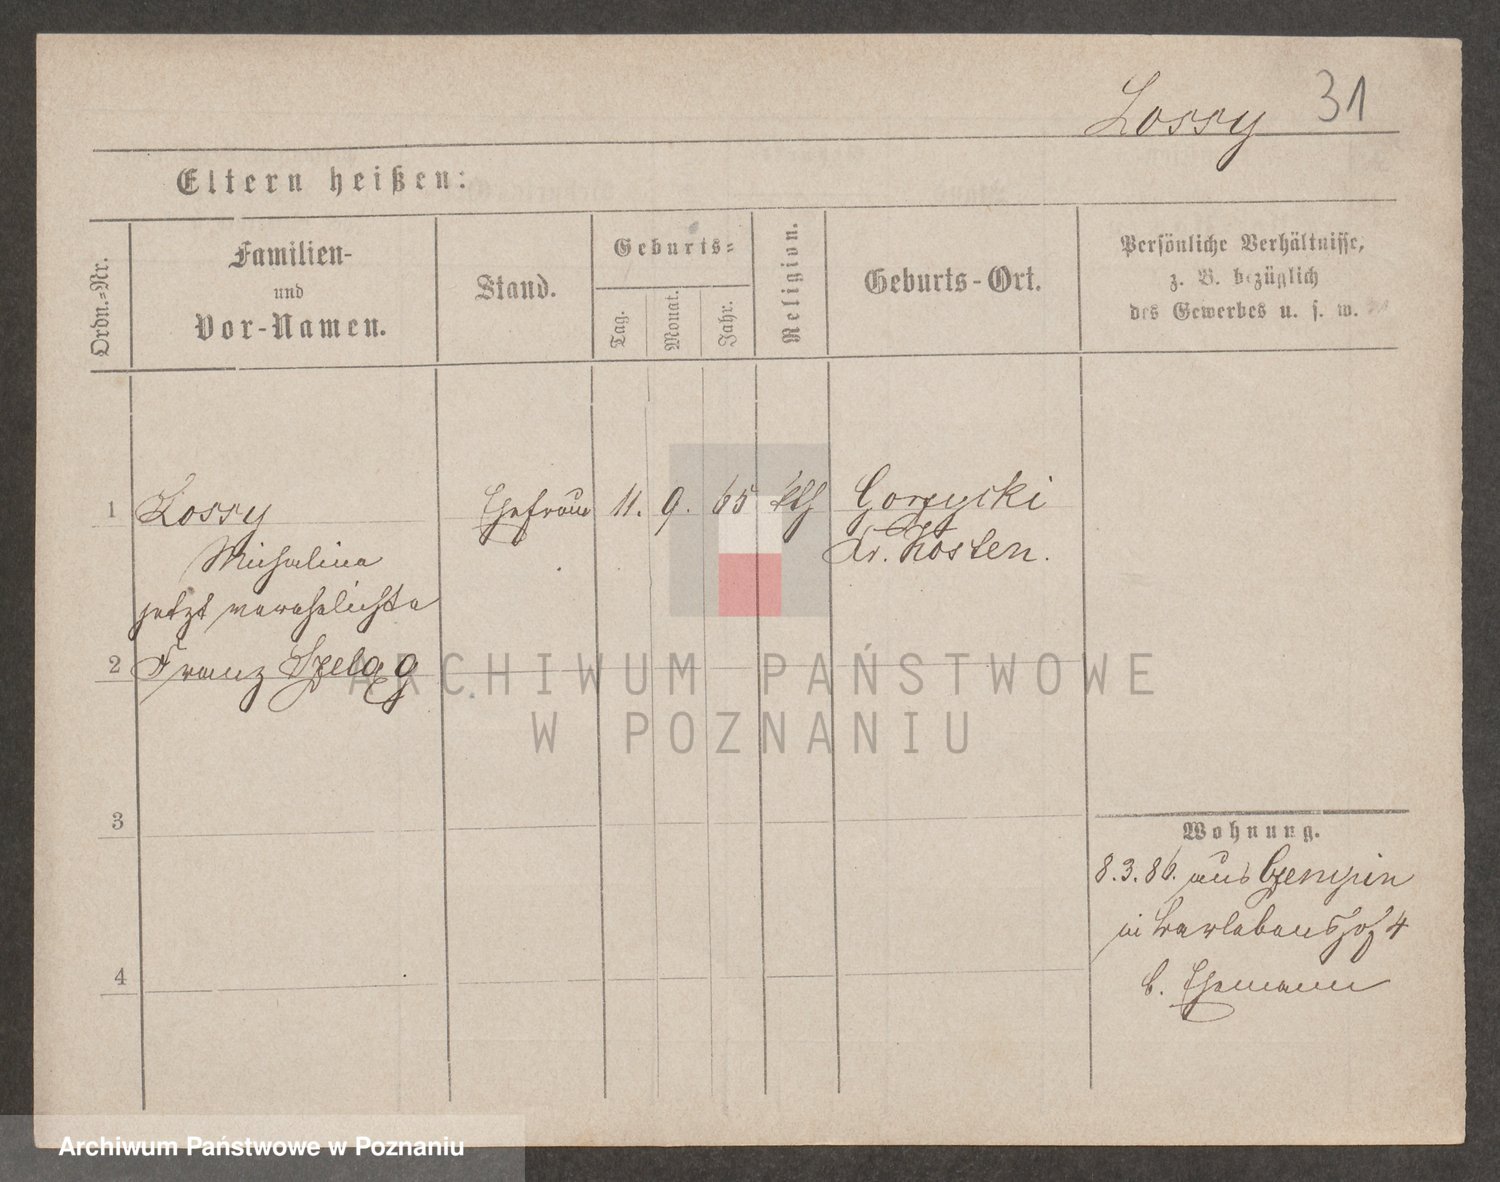 Lossy 31
Eltern heißen:
Ordn.-Nr.
Familien-
und
Vor-Namen.
Stand.
Geburts-
Tag.
Monat.
Jahr.
Religion.
Geburts-Ort.
Persönliche Verhältnisse,
z. B. bezüglich
des Gewerbes u. s. w.
1 Lossy Ehefrau 11. 9. 65 kth Gorzycki
Kr. Kosten.
Michalina
jetzt verehelichte
2 Franz Szeląg
3
4
Wohnung.
8.3.86. aus Czempin
in Barlebenshof 4
b. Ehemann
ARCHIWUM PAŃSTWOWE
W POZNANIU
Archiwum Państwowe w Poznaniu